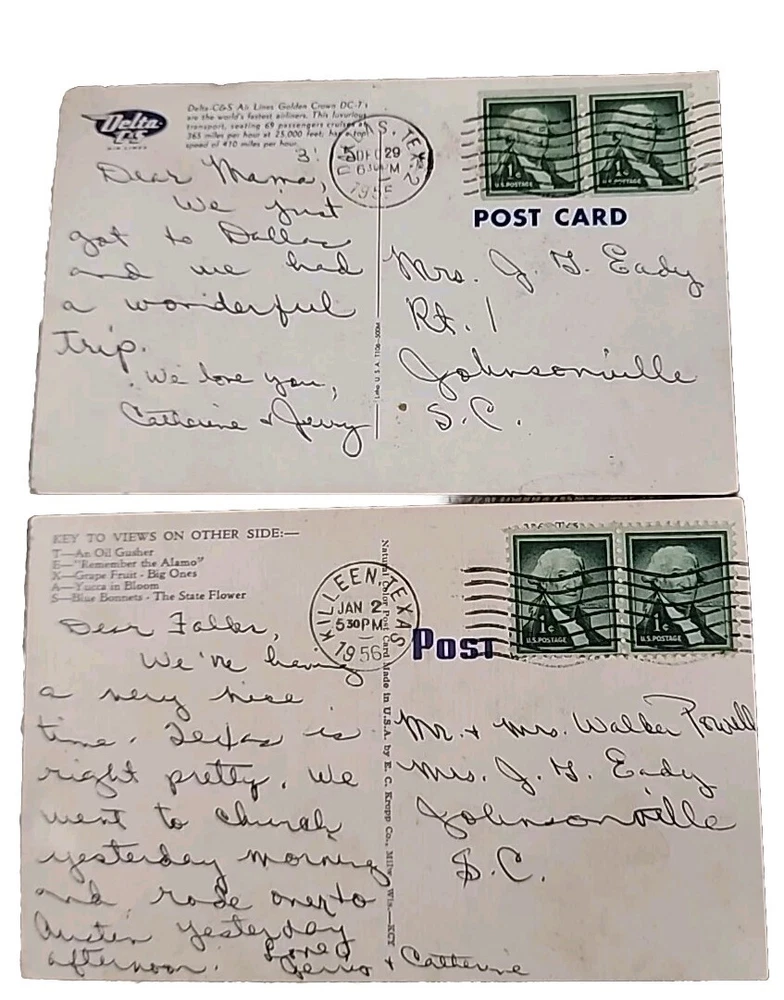 Delta
C&S
AIR LINES
Delta-C&S Air Lines Golden Crown DC-7's
are the world's fastest airliners. This luxurious
transport, seating 69 passengers cruises at
365 miles per hour at 25,000 feet; has a top
speed of 410 miles per hour.
DALLAS, TEX. 2
DEC 29
630 PM
1955
1¢
U.S. POSTAGE
1¢
U.S. POSTAGE
POST CARD
Dear Mama,
We just
got to Dallas
and we had
a wonderful
trip.
We love you,
Catherine & Jerry
Mrs. J. G. Eady
Rt. 1
Johnsonville
S.C.
KEY TO VIEWS ON OTHER SIDE:—
T—An Oil Gusher
E—"Remember the Alamo"
X—Grape Fruit - Big Ones
A—Yucca in Bloom
S—Blue Bonnets - The State Flower
Natural Color Post Card Made in U.S.A. by E. C. Kropp Co., Milw., Wis.—KCY
KILLEEN, TEXAS
JAN 2
530 PM
1956
POST
1¢
U.S. POSTAGE
1¢
U.S. POSTAGE
Dear Folks,
We're having
a very nice
time. Texas is
right pretty. We
went to church
yesterday morning
and rode over to
Austin yesterday
afternoon.
Love,
Jerry & Catherine
Mr. & Mrs. Walter Powell
Mrs. J. G. Eady
Johnsonville
S.C.